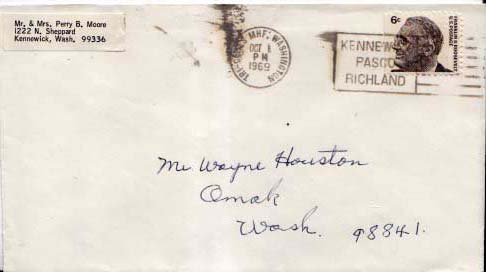 Mr. & Mrs. Perry B. Moore
1222 N. Sheppard
Kennewick, Wash. 99336
TRI-CITIES MHF. WASHINGTON
OCT 1
PM
1969
KENNEW
PASCO
RICHLAND
6c
FRANKLIN D. ROOSEVELT
U.S. POSTAGE
Mr. Wayne Houston
Omak
Wash. 98841.